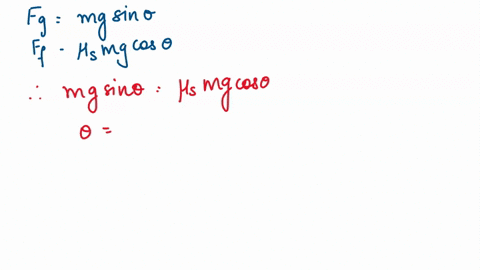 Fg : mg sin θ
Ff - μs mg cos θ
∴ mg sin θ · μs mg cos θ
θ =